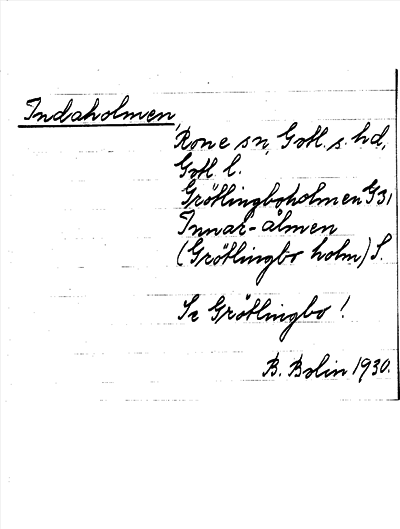 Indaholmen,
Rone sn, Gotl. s. hd,
Gotl l.
Grötlingboholmen G31
Innar-ålmen
(Grötlingbo holm) S.
Se Grötlingbo!
B. Bolin 1930.